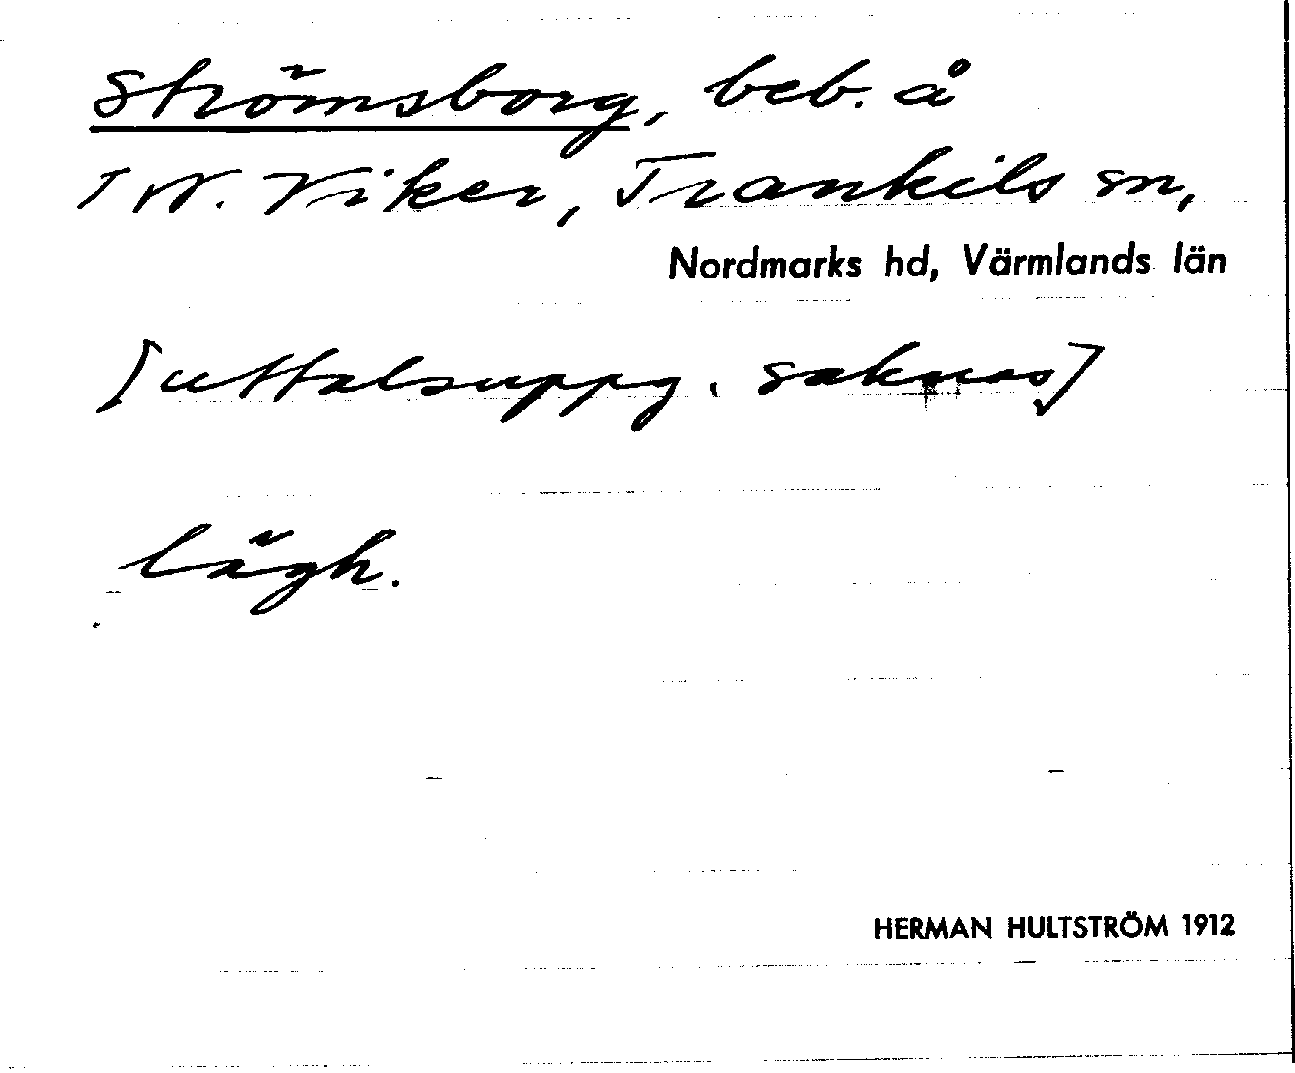 Strömsborg, beb. å
1 N. Viker, Trankils sn,
Nordmarks hd, Värmlands län
[uttalsuppg. saknas]
lägh.
HERMAN HULTSTRÖM 1912